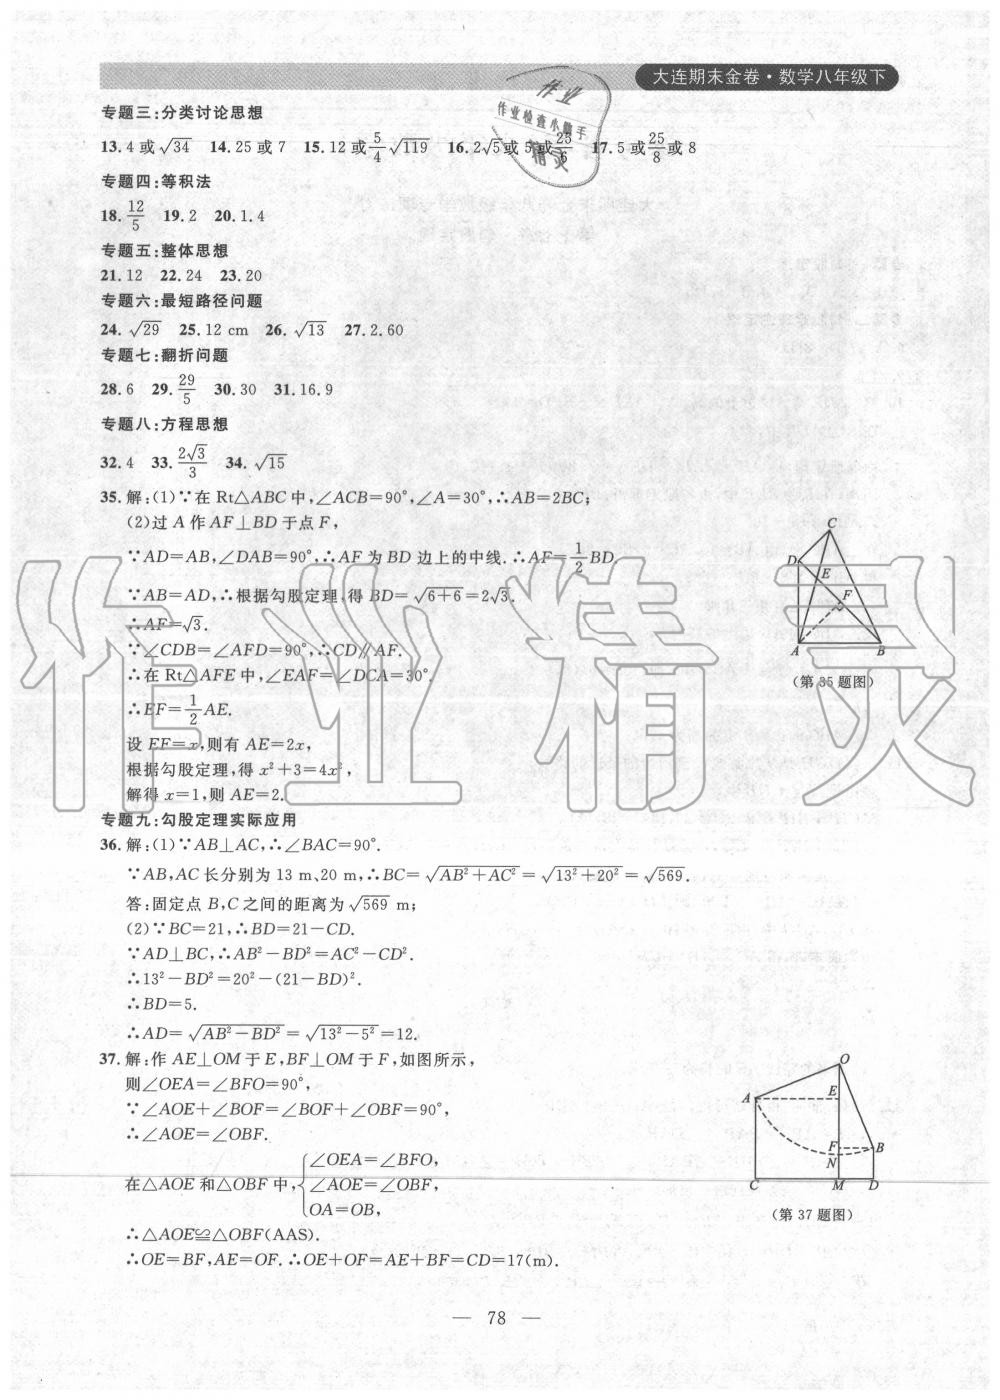 大连期末金卷·数学八年级下
专题三:分类讨论思想
13. 4 或√34  14. 25 或 7  15. 12 或 5/4 √119  16. 2√5 或 5 或 25/6  17. 5 或 25/8 或 8
专题四:等积法
18. 12/5  19. 2  20. 1.4
专题五:整体思想
21. 12  22. 24  23. 20
专题六:最短路径问题
24. √29  25. 12 cm  26. √13  27. 2.60
专题七:翻折问题
28. 6  29. 29/5  30. 30  31. 16.9
专题八:方程思想
32. 4  33. 2√3/3  34. √15
35. 解:(1)∵在 Rt△ABC 中,∠ACB=90°,∠A=30°,∴AB=2BC;
(2)过 A 作 AF⊥BD 于点 F,
∵AD=AB,∠DAB=90°,∴AF 为 BD 边上的中线.∴AF=1/2 BD.
∵AB=AD,∴根据勾股定理,得 BD=√(6+6)=2√3.
∴AF=√3.
∵∠CDB=∠AFD=90°,∴CD∥AF.
∴在 Rt△AFE 中,∠EAF=∠DCA=30°.
∴EF=1/2 AE.
设 EF=x,则有 AE=2x,
根据勾股定理,得 x²+3=4x²,
解得 x=1,则 AE=2.
C
D
E
F
A
B
(第 35 题图)
专题九:勾股定理实际应用
36. 解:(1)∵AB⊥AC,∴∠BAC=90°.
∵AB,AC 长分别为 13 m、20 m,∴BC=√(AB²+AC²)=√(13²+20²)=√569.
答:固定点 B,C 之间的距离为√569 m;
(2)∵BC=21,∴BD=21-CD.
∵AD⊥BC,∴AB²-BD²=AC²-CD².
∴13²-BD²=20²-(21-BD)².
∴BD=5.
∴AD=√(AB²-BD²)=√(13²-5²)=12.
37. 解:作 AE⊥OM 于 E,BF⊥OM 于 F,如图所示,
则∠OEA=∠BFO=90°,
∵∠AOE+∠BOF=∠BOF+∠OBF=90°,
∴∠AOE=∠OBF.
在△AOE 和△OBF 中,{∠OEA=∠BFO,
∠AOE=∠OBF,
OA=OB,
∴△AOE≌△OBF(AAS).
∴OE=BF,AE=OF.∴OE+OF=AE+BF=CD=17(m).
O
A
E
F
B
N
C
M
D
(第 37 题图)
— 78 —
作业
作业检查小助手
精灵
作业精灵